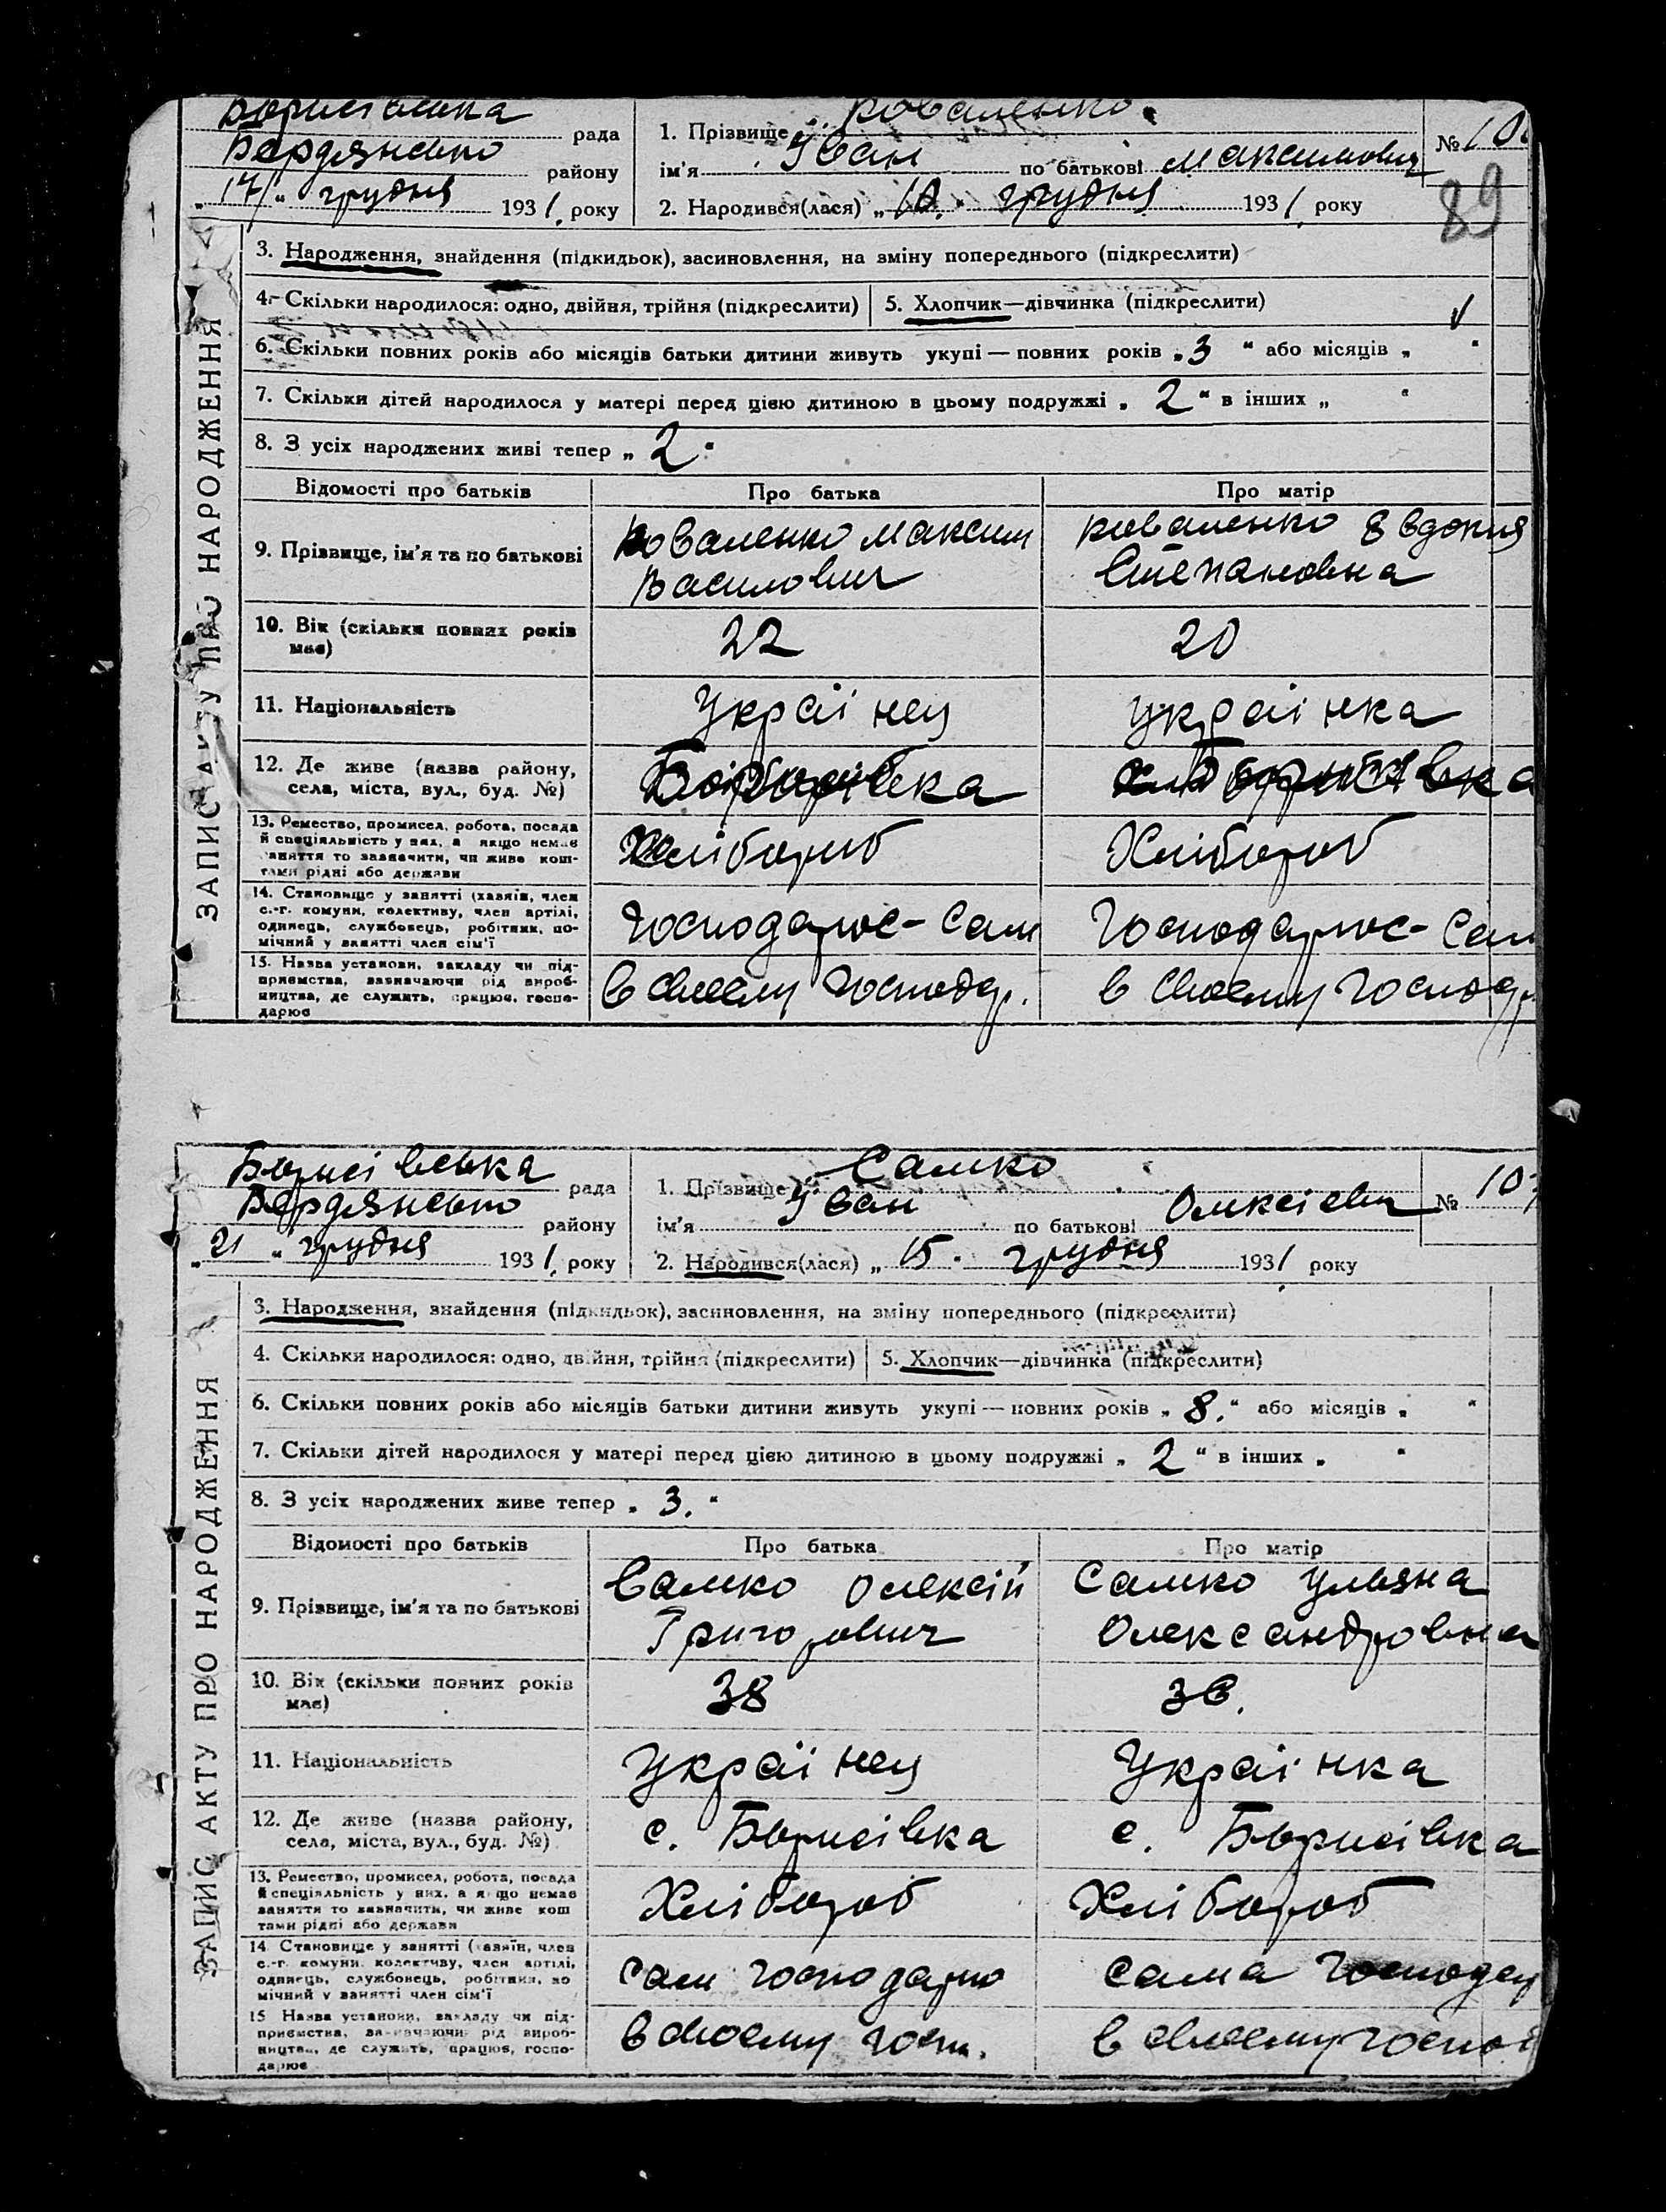 Борисівська рада
Бердянсько району
„17“ грудня 1931 року
1. Прізвище Коваленко
ім'я Іван по батькові Максимович
2. Народився(лася) „10“ грудня 1931 року
№ 10
89
ЗАПИС АКТУ ПРО НАРОДЖЕННЯ
3. Народження, знайдення (підкидьок), засиновлення, на зміну попереднього (підкреслити)
4. Скільки народилося: одно, двійня, трійня (підкреслити) 5. Хлопчик—дівчинка (підкреслити)
6. Скільки повних років або місяців батьки дитини живуть укупі — повних років „3“ або місяців „ “
7. Скільки дітей народилося у матері перед цією дитиною в цьому подружжі „2“ в інших „ “
8. З усіх народжених живі тепер „2“
Відомості про батьків Про батька Про матір
9. Прізвище, ім'я та по батькові
Коваленко Максим
Василович
Коваленко Евдокия
Степановна
10. Вік (скільки повних років має) 22 20
11. Національність Украінец українка
12. Де живе (назва району,
села, міста, вул., буд. №)
Борисівка
Борисівка
13. Ремество, промисел, робота, посада
й спеціяльність у них, а якщо немає
заняття то зазначити, чи живе кош-
тами рідні або держави
Хлібороб Хлібороб
14. Становище у занятті (хазяїн, член
с.-г. комуни, колективу, член артілі,
одинець, службовець, робітник, по-
мічний у занятті член сім'ї
Господарює - Сам Господарює - Сам
15. Назва установи, закладу чи під-
приємства, зазначаючи рід вироб-
ництва, де служить, працює, госпо-
дарює
в своему Господар. в своему Господ
Борисівська рада
Бердянсько району
„21“ грудня 1931 року
1. Прізвище Самко
ім'я Іван по батькові Олексіевич
2. Народився(лася) „15“ грудня 1931 року
№ 107
ЗАПИС АКТУ ПРО НАРОДЖЕННЯ
3. Народження, знайдення (підкидьок), засиновлення, на зміну попереднього (підкреслити)
4. Скільки народилося: одно, двійня, трійня (підкреслити) 5. Хлопчик—дівчинка (підкреслити)
6. Скільки повних років або місяців батьки дитини живуть укупі — повних років „8.“ або місяців „ “
7. Скільки дітей народилося у матері перед цією дитиною в цьому подружжі „2“ в інших „ “
8. З усіх народжених живе тепер „3.“
Відомості про батьків Про батька Про матір
9. Прізвище, ім'я та по батькові
Самко Олексій
Григорович
Самко Ульяна
Олександровна
10. Вік (скільки повних років має) 38 36.
11. Національність Украінец Украінка
12. Де живе (назва району,
села, міста, вул., буд. №)
с. Борисівка с. Борисівка
13. Ремество, промисел, робота, посада
й спеціяльність у них, а якщо немає
заняття то зазначити, чи живе кош
тами рідні або держави
Хлібороб Хлібороб
14 Становище у занятті (хазяїн, член
с.-г. комуни, колективу, член артілі,
одинець, службовець, робітник, по
мічний у занятті член сім'ї
Сам господарю Сама Господар
15 Назва установи, закладу чи під-
приємства, зазначаючи рід вироб-
ництва, де служить, працює, госпо-
дарює
в своему госп. в своему госпо